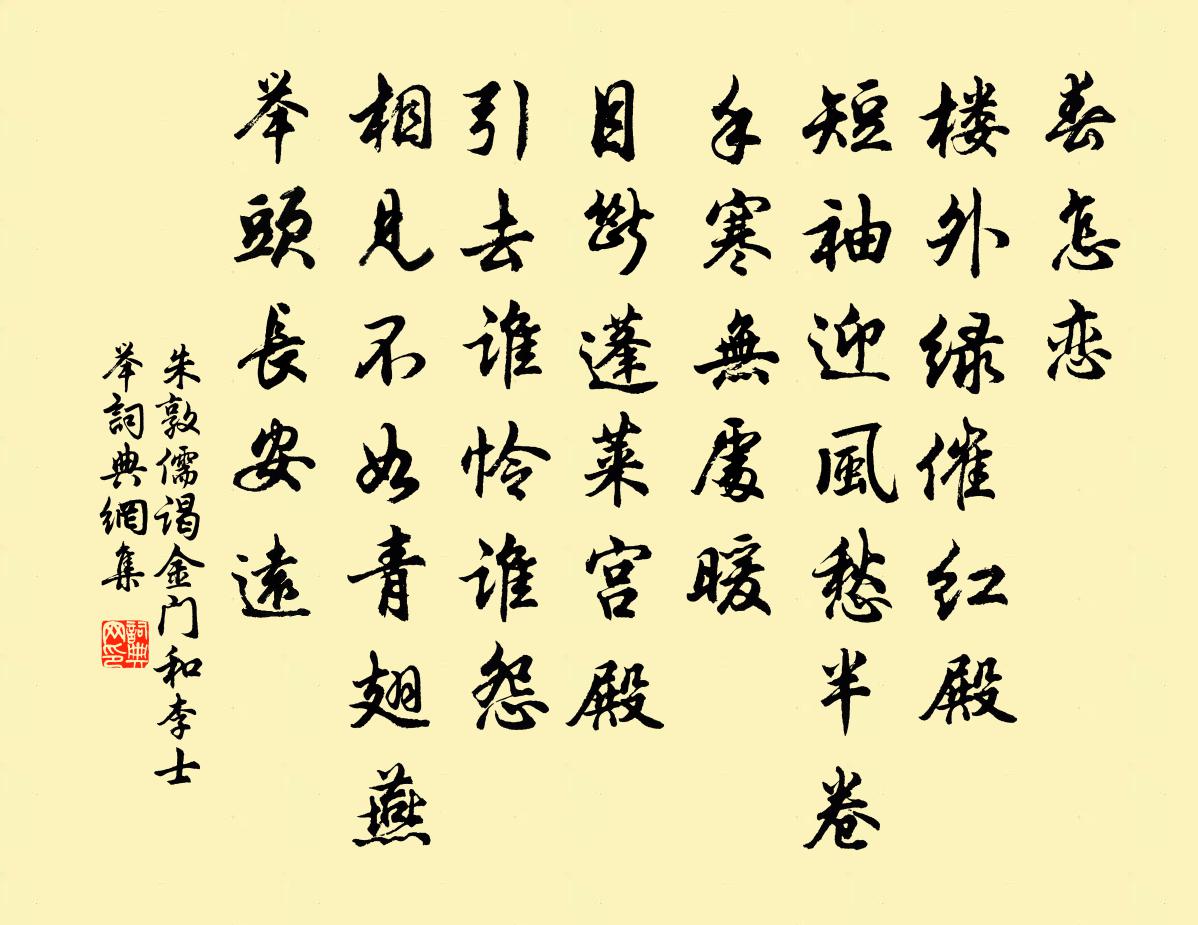 春怎恋
楼外绿催红殿
短袖迎風愁半卷
手寒無處暖
目断蓬莱宫殿
引去谁怜谁怨
相見不如青翅燕
举頭長安遠
朱敦儒谒金门和李士
举詞典網集
詞典网印